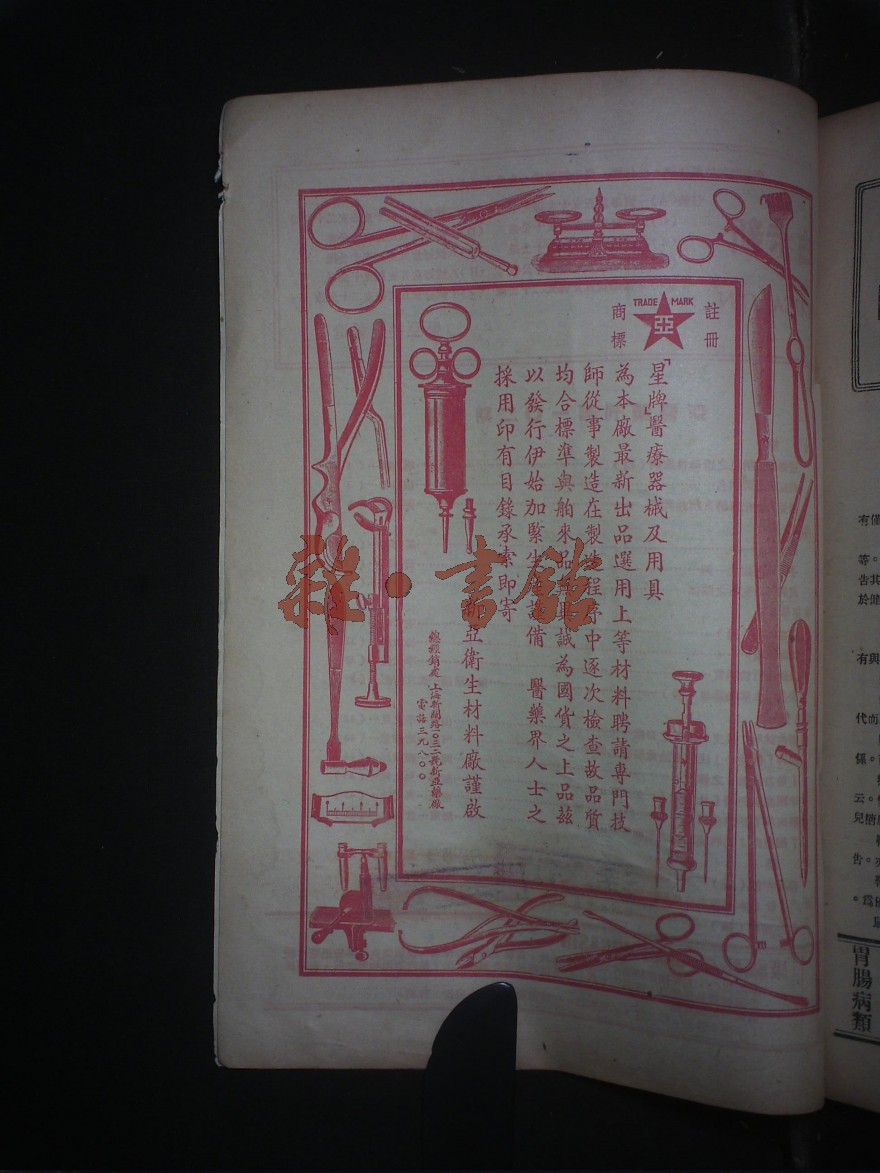 註冊
TRADE MARK
亞
商標
「星牌」醫療器械及用具
為本廠最新出品選用上等材料聘請專門技
師從事製造在製造程序中逐次檢查故品質
均合標準與舶來品無異誠為國貨之上品茲
以發行伊始加緊生產設備　醫藥界人士之
採用印有目錄承索即寄
新亞衛生材料廠謹啟
總經銷處 上海新閘路一〇三二號新亞藥廠
電話三九八〇〇
雜·書館
胃腸病類